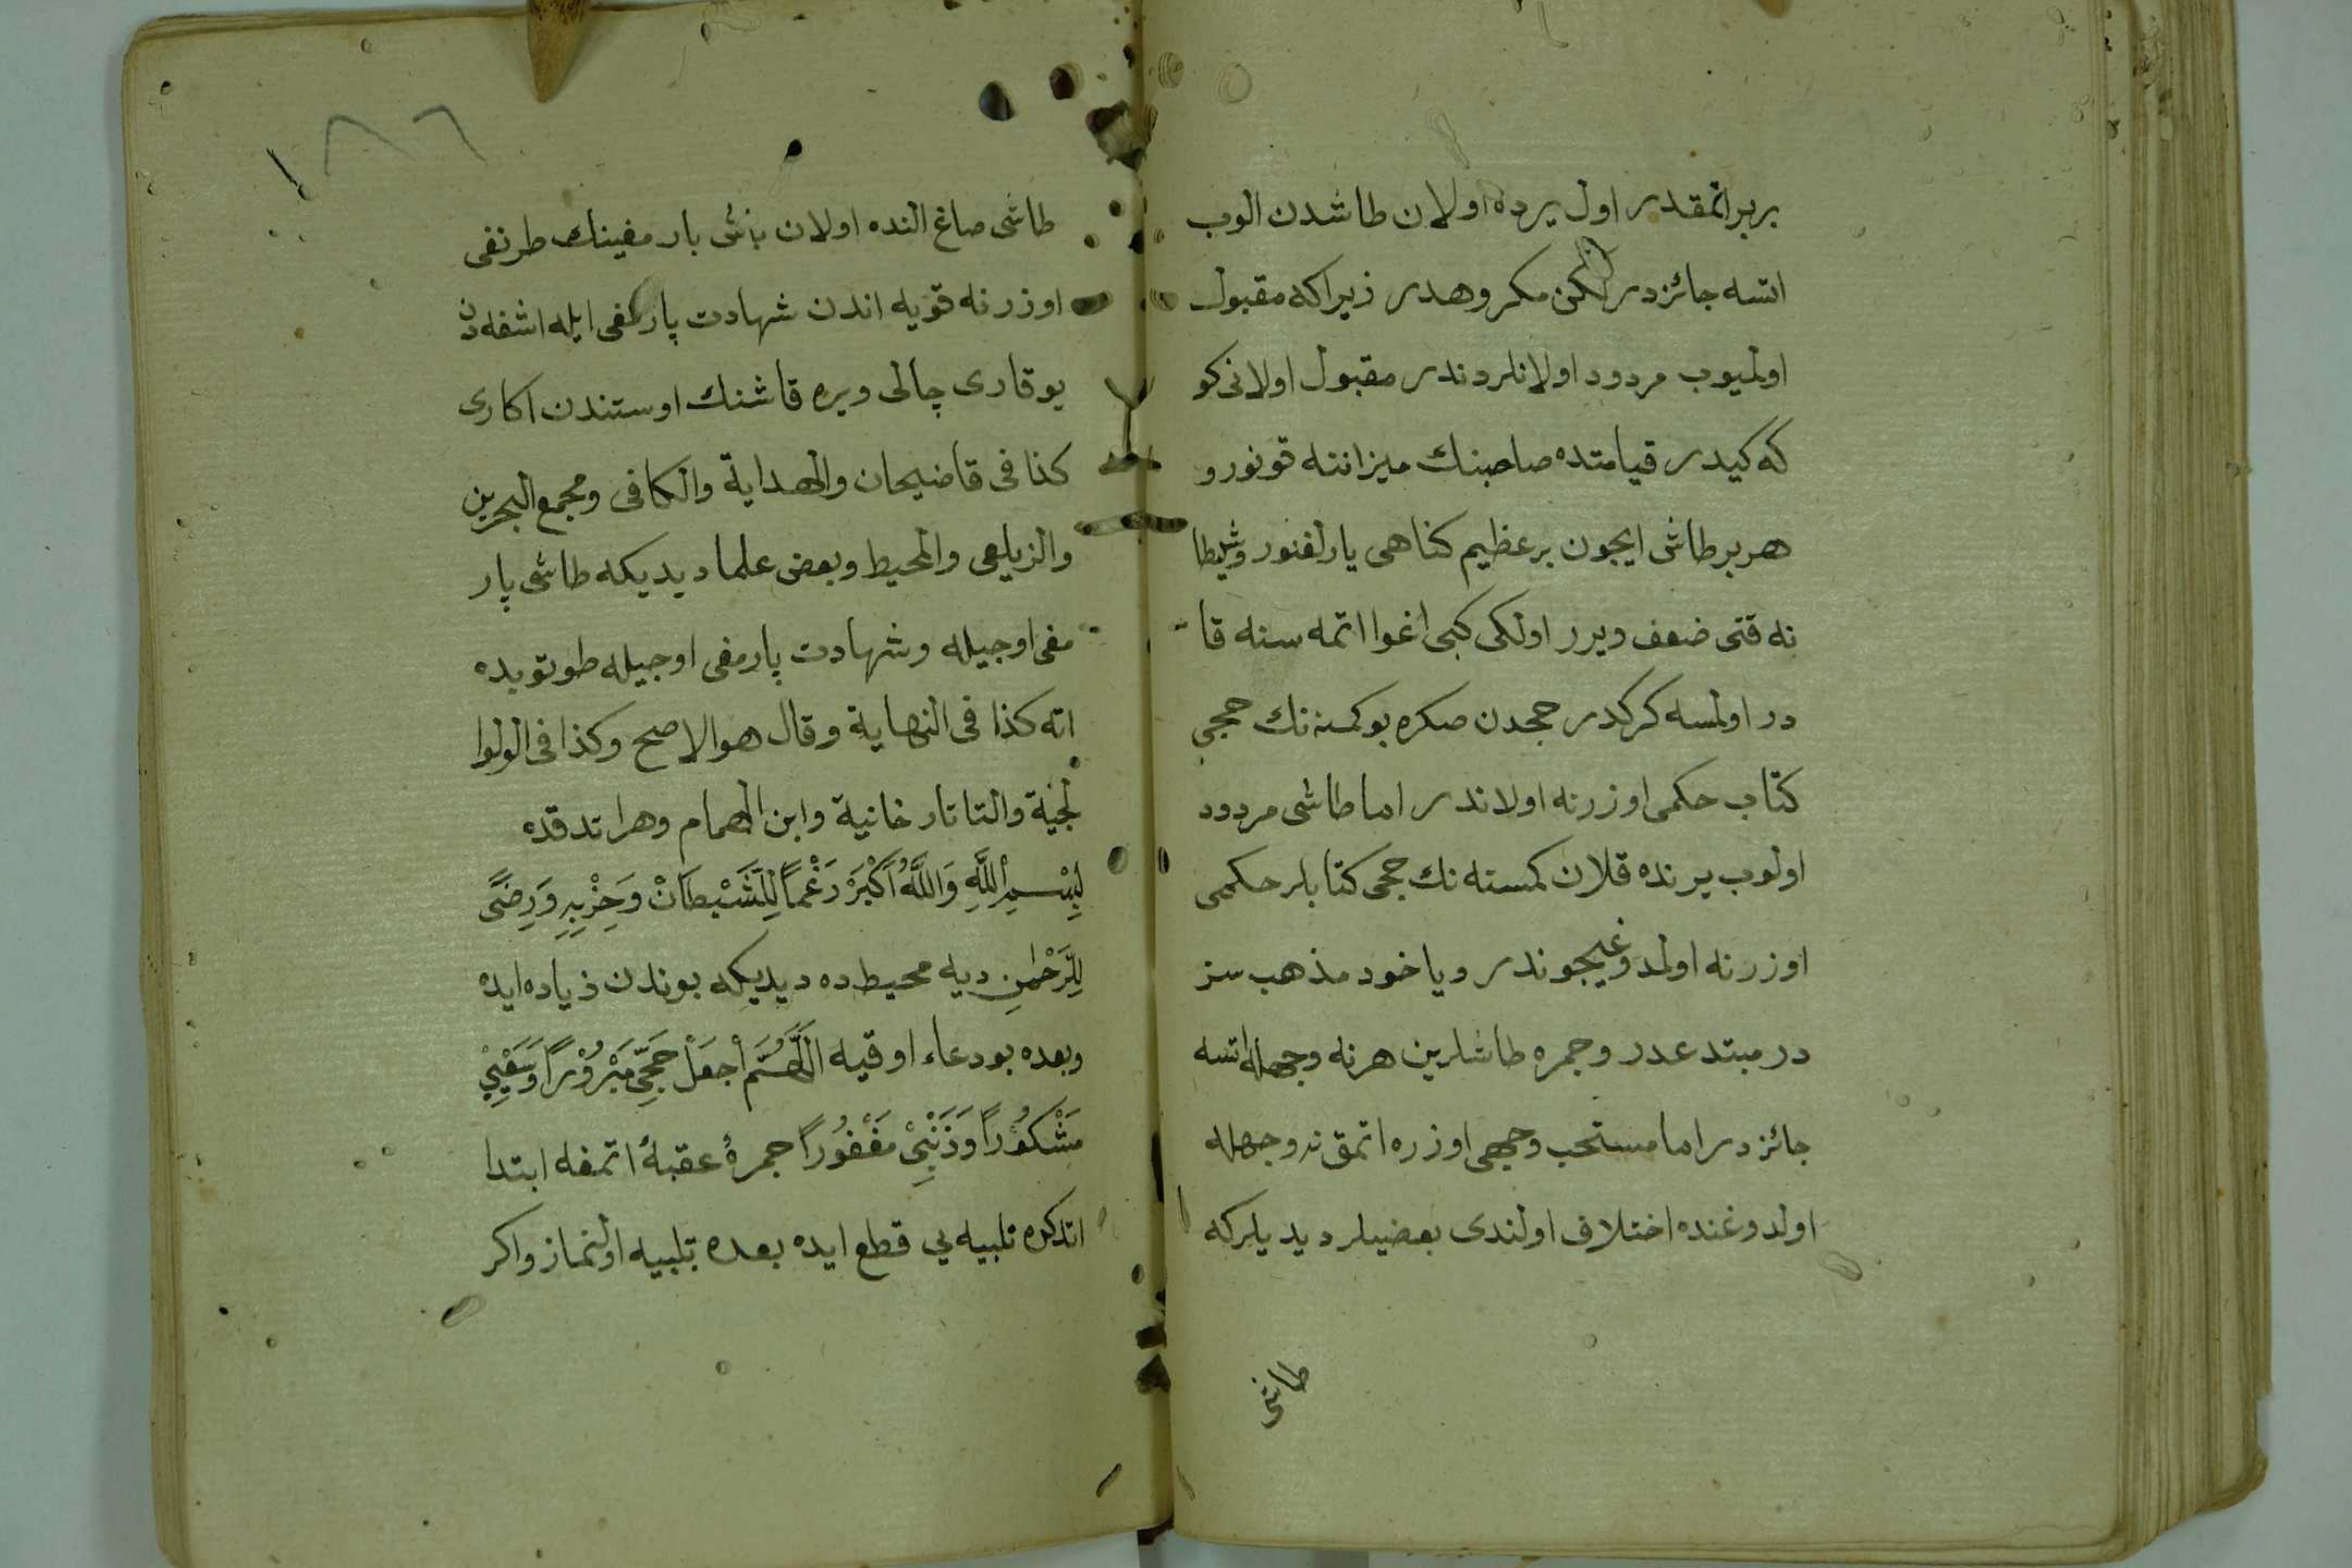 بربر اتمقدر اول يرده اولان طاشدن الوب
اتسه جائزدر لكن مكروهدر زيراكه مقبول
اولميوب مردود اولانلردندر مقبول اولانى كو
كه كيدر قيامتده صاحبنك ميزاننه قونور و
هر بر طاش ايجون بر عظيم كناهى يارلغنور وشيطا
نه قتى ضعف ويرر اولكى كبى اغوا اتمه سنه قا
در اولمسه كركدر حجدن صكره بوكمسه نك حجى
كتاب حكمى اوزرنه اولاندر اما طاشى مردود
اولوب يرنده قلان كمسته نك حجى كتابلر حكمى
اوزرنه اولمدوغيجوندر ويا خود مذهب سز
در مبتدعدر وجمره طاشلرين هرنه وجهله اتسه
جائزدر اما مستحب وجهى اوزره اتمق نه وجهله
اولدوغنده اختلاف اولندى بعضيلر ديديلركه
طاشى
١٨٦
طاشى صاغ النده اولان باش بارمغينك طرنغى
اوزرنه قويه اندن شهادت پارمغى ايله اشغه دن
يوقارى چالى ويره قاشنك اوستندن اكارى
كذا فى قاضيحان والهداية والكافى ومجمع البحرين
والزيلعى والمحيط وبعض علما ديديكه طاشى پار
مغى اوجيله وشهادت پارمغى اوجيله طوتوبده
اته كذا فى النهاية وقال هوالاصح وكذا فى الولوا
لجية والتاتارخانية وابن الهمام وهر اتدقده
بِسْمِ اللَّهِ وَاللَّهُ اَكْبَرْ رَغْمًا لِلشَّيْطَانْ وَحِزْبِهِ وَرِضًى
لِلرَّحْمٰنِ ديه محيطده ديديكه بوندن زياده ايده
وبعده بودعاء اوقيه اَللَّهُمَّ اْجعَلْ حَجِّى مَبْرُوْرًا وَسَعْيِىْ
مَشْكُوْرًا وَذَنْبِىْ مَغْفُوْرًا جمرۀ عقبۀ اتمغه ابتدا
اتدكده تلبيه يى قطع ايده بعده تلبيه اولنماز واكر